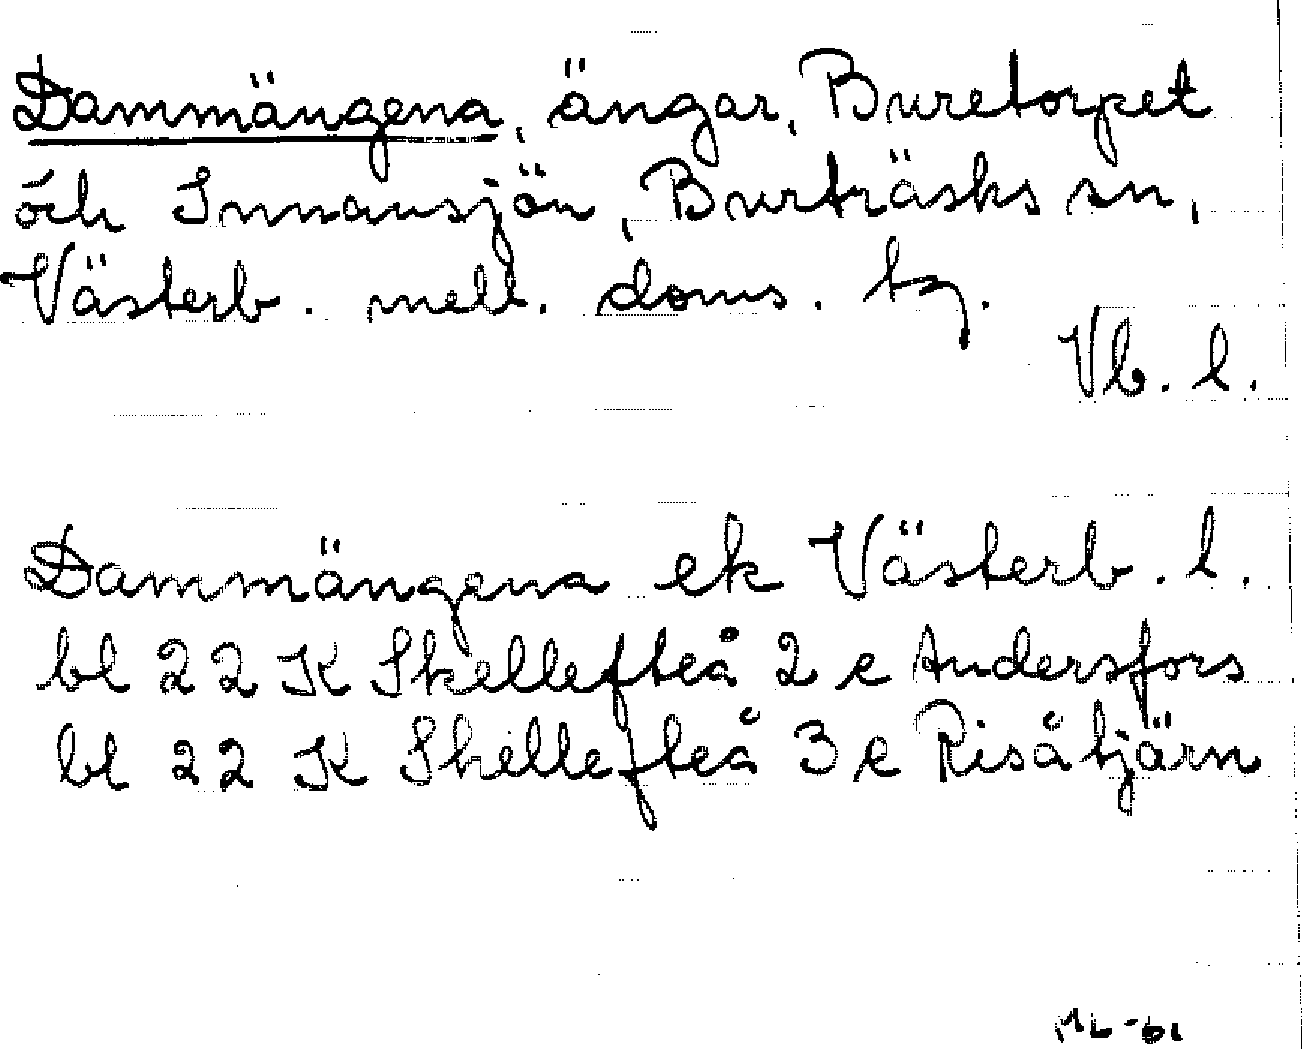 Dammängena, ängar, Buretorpet
och Innansjön, Burträsks sn,
Västerb. mell. doms. tg.
Vb. l.
Dammängena ek Västerb. l.
bl 22 K Skellefteå 2 e Andersfors
bl 22 K Skellefteå 3 e Risåtjärn